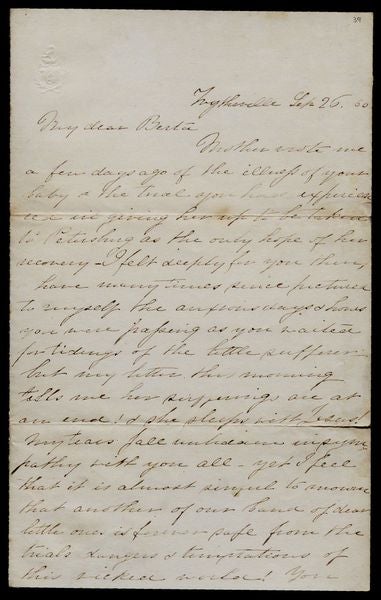 39
Wytheville Sep 26. 60
My dear Berta
Mother wrote me
a few days ago of the illness of your
baby & the trial you had experien
ced in giving her up to be taken
to Petersburg as the only hope of her
recovery - I felt deeply for you then,
have many times since pictured
to myself the anxious days & hours
you were passing as you waited
for tidings of the little sufferer
but my letter this morning
tells me her sufferings are at
an end! & she sleeps with Jesus!
My tears fall unbidden in sym-
pathy with you all - yet I feel
that it is almost sinful to mourn
that another of our band of dear
little ones is forever safe from the
trials dangers & temptations of
this wicked world! You